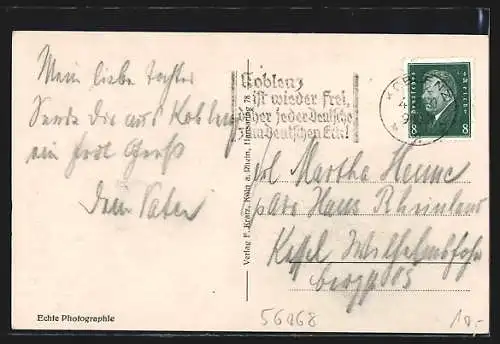 Mein liebe Tochter
Sende dir aus Koblenz
ein herzl. Gruß
Dein Vater
Echte Photographie
Verlag F. Kratz, Köln a. Rhein, Hansaring 78
Coblenz
ist wieder frei,
daher jeder Deutsche
am Deutschen Eck!
KOBLENZ
Deutsches Reich
8 8
Frl Martha Henne
Haus Rheinland
Kassel Wilhelmshöhe
56068
10.-